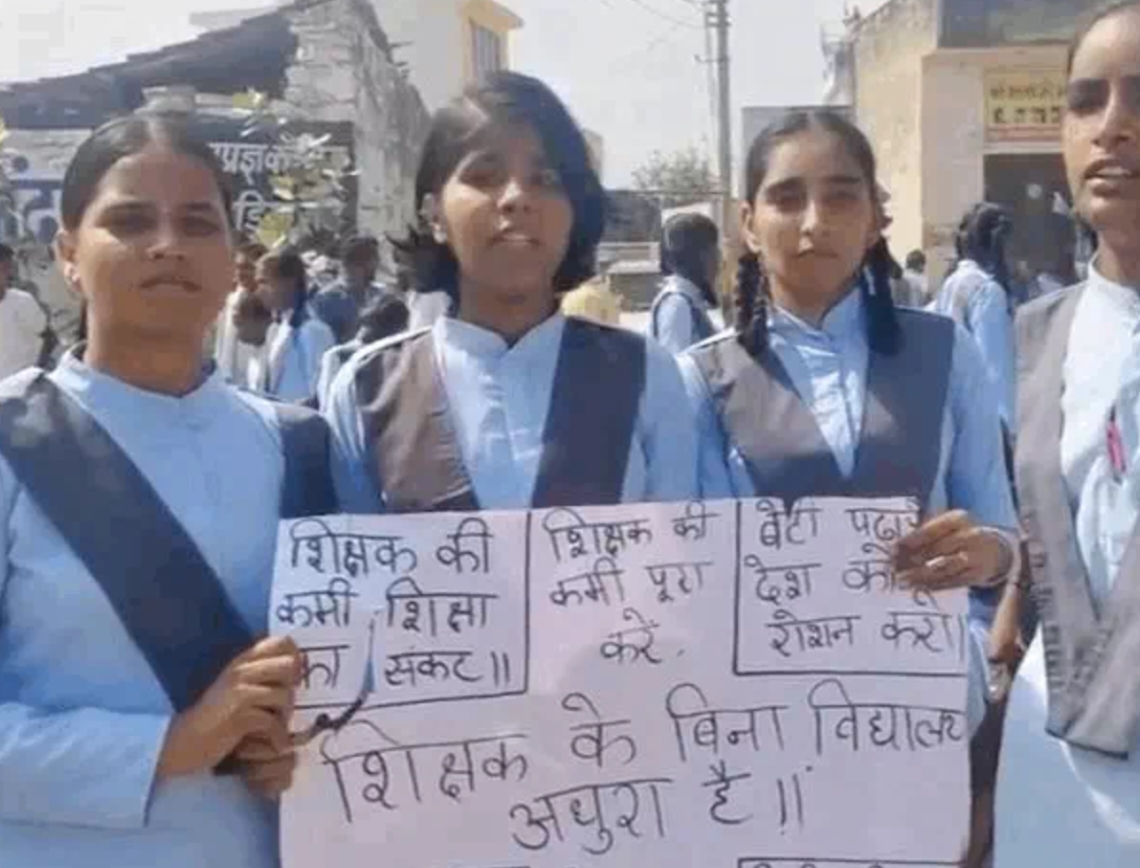 शिक्षक की
कमी शिक्षा
का संकट॥
शिक्षक की
कमी पूरा
करें.
बेटी पढ़ाओ
देश को
रोशन करो।
शिक्षक के बिना विद्यालय
अधुरा है॥